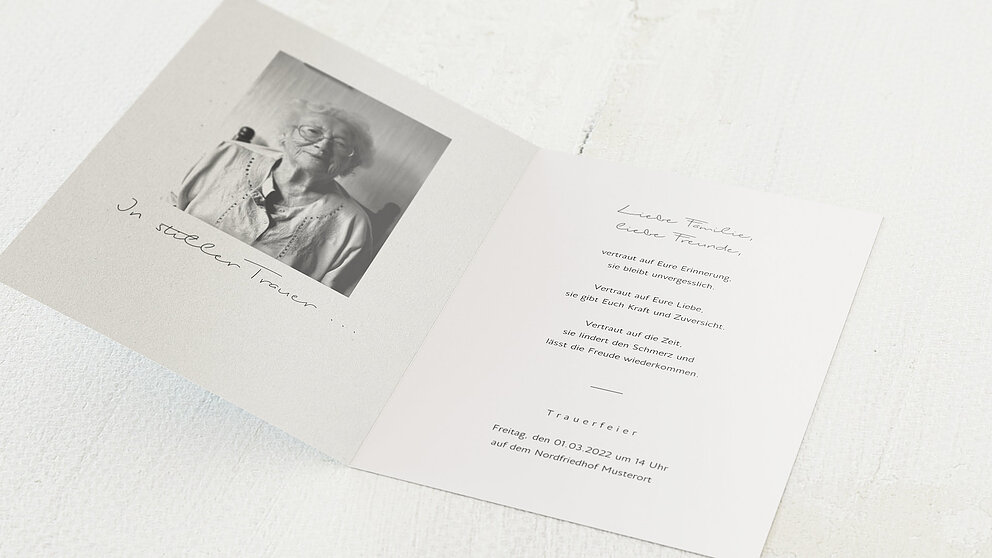 In stiller Trauer ...
Liebe Familie,
liebe Freunde,
vertraut auf Eure Erinnerung,
sie bleibt unvergesslich.
Vertraut auf Eure Liebe,
sie gibt Euch Kraft und Zuversicht.
Vertraut auf die Zeit,
sie lindert den Schmerz und
lässt die Freude wiederkommen.
Trauerfeier
Freitag, den 01.03.2022 um 14 Uhr
auf dem Nordfriedhof Musterort